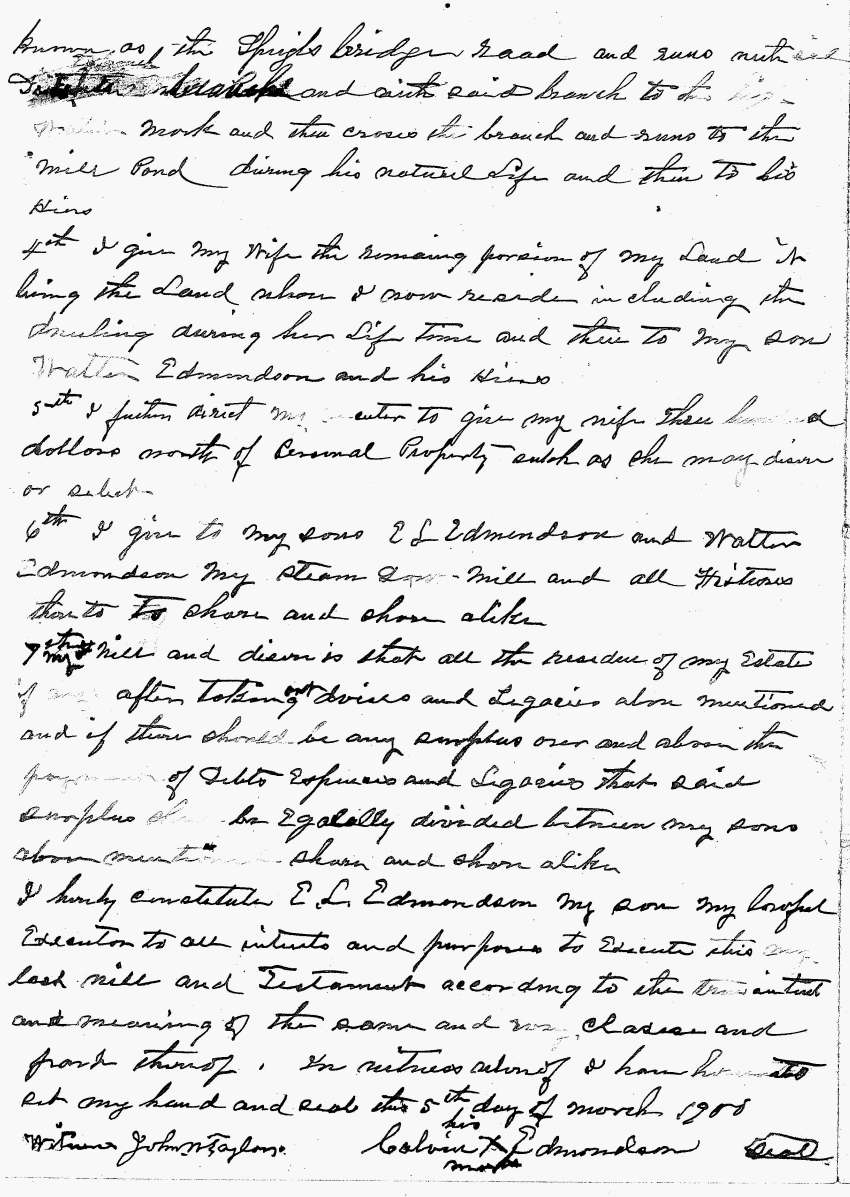 known as the Spights bridge road and runs
branch and with said branch to the
mark and then croses the branch and runs to the
Mill Pond during his naturel Life and then to his
Hiers
4th I give My Wife the remaing porsion of my Land
being the Land whear I now reside including the
dweeling during her Life Time and then to My son
Walter Edmondson and his Hiers
5th I futher direct my to give my wife Three
dollars worth of Personal Property sutch as she may
or select
6th I give to My sons E L Edmondson and Walter
Edmondson My steam Saw Mill and all Fistures
thereto To share and share alike
7th my Will and is that all the residue of my Estate
if any after taking out devises and Legacies above mentioned
and if there should be any surplus over and above the
of Debts Expences and Legacies that said
surplus be Egaleally divided between my sons
above share and share alike
I herby constitute E. L. Edmondson My son My lawful
Executor to all intents and purposes to Execute this my
last will and Testament according to the true intent
and meaning of the same and clause and
part thereof. In witness whereof I have
set my hand and seal this 5th day of march 1900
his
Witness John Taylor. Calvin X Edmondson Seal
mark